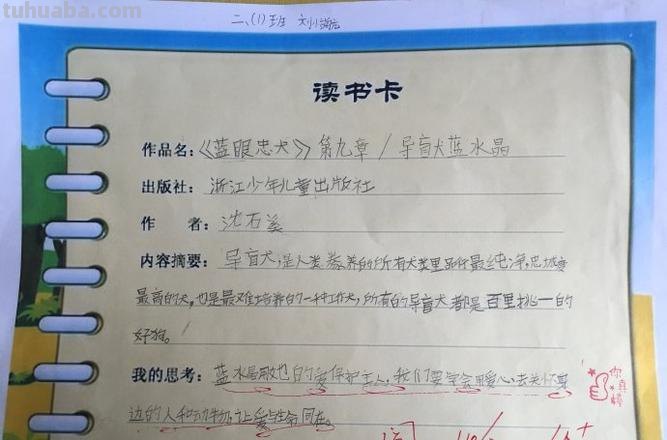 tuhuaba.com
二、(1)班 刘
读书卡
作品名：《蓝眼忠犬》第九章/导盲犬蓝水晶
出版社：浙江少年儿童出版社
作 者：沈石溪
内容摘要：导盲犬,是人类豢养的所有犬类里品行最纯净,忠诚度
最高的犬,也是最难培养的一种工作犬,所有的导盲犬都是百里挑一的
好狗。
我的思考：蓝水晶用它的爱保护主人,我们要学会用爱心,去关怀身
边的人和动物,让爱与生命同在。
你真棒